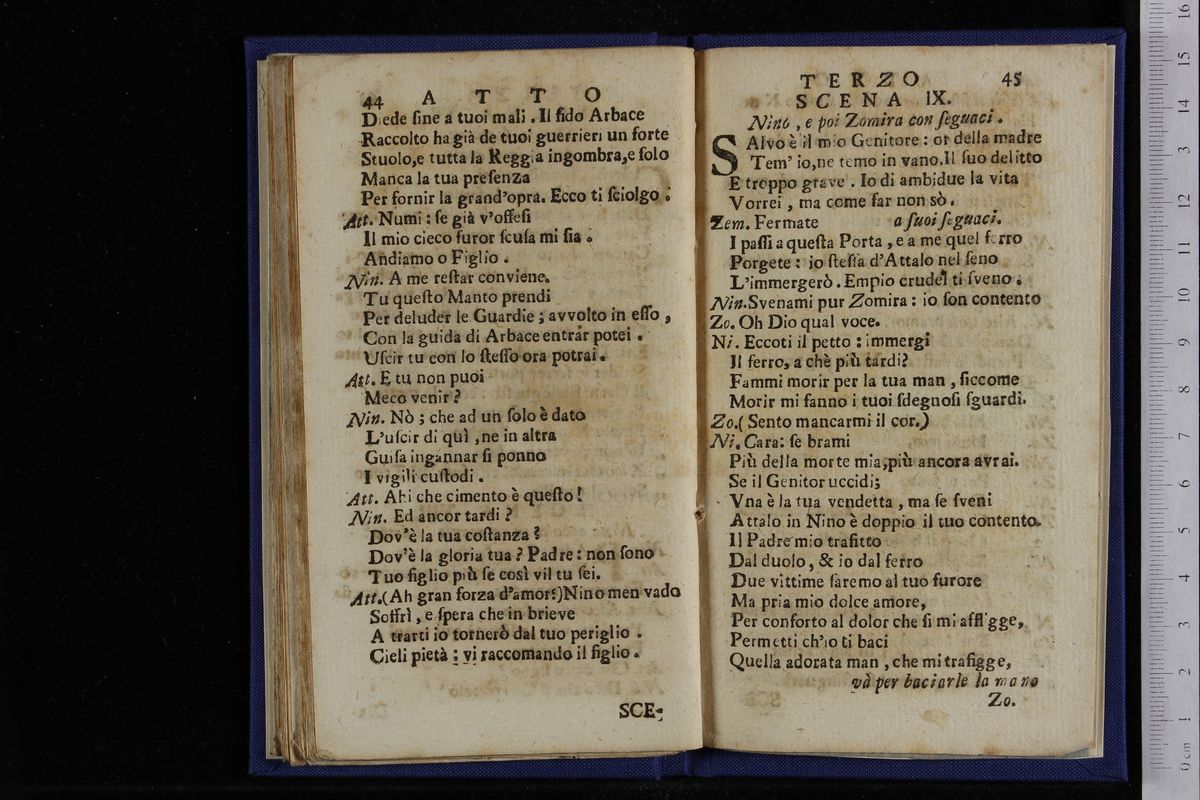 44 ATTO
Diede fine a tuoi mali. Il fido Arbace
Raccolto ha già de tuoi guerrieri un forte
Stuolo, e tutta la Reggia ingombra, e ſolo
Manca la tua preſenza
Per fornir la grand'opra. Ecco ti ſciolgo.
Att. Numi: ſe già v'offeſi
Il mio cieco furor ſcuſa mi ſia.
Andiamo o Figlio.
Nin. A me reſtar conviene.
Tu queſto Manto prendi
Per deluder le Guardie; avvolto in eſſo,
Con la guida di Arbace entrar potei.
Uſcir tu con lo ſteſſo ora potrai.
Att. E tu non puoi
Meco venir?
Nin. Nò; che ad un ſolo è dato
L'uſcir di quì, ne in altra
Guiſa ingannar ſi ponno
I vigili cuſtodi.
Att. Ahi che cimento è queſto!
Nin. Ed ancor tardi?
Dov'è la tua coſtanza?
Dov'è la gloria tua? Padre: non ſono
Tuo figlio più ſe così vil tu ſei.
Att. (Ah gran forza d'amor!) Nino men vado
Soffrì, e ſpera che in brieve
A trarti io tornerò dal tuo periglio.
Cieli pietà: vi raccomando il figlio.
SCE-
TERZO 45
SCENA IX.
Nino, e poi Zomira con ſeguaci.
SAlvo è il mio Genitore: or della madre
Tem' io, ne temo in vano. Il ſuo delitto
E troppo grave. Io di ambidue la vita
Vorrei, ma come far non sò.
Zem. Fermate a ſuoi ſeguaci.
I paſſi a queſta Porta, e a me quel ferro
Porgete: io ſteſſa d'Attalo nel ſeno
L'immergerò. Empio crudel ti ſveno.
Nin. Svenami pur Zomira: io ſon contento
Zo. Oh Dio qual voce.
Ni. Eccoti il petto: immergi
Il ferro, a chè più tardi?
Fammi morir per la tua man, ſiccome
Morir mi fanno i tuoi ſdegnoſi ſguardi.
Zo. (Sento mancarmi il cor.)
Ni. Cara: ſe brami
Più della morte mia, più ancora avrai.
Se il Genitor uccidi;
Vna è la tua vendetta, ma ſe ſveni
Attalo in Nino è doppio il tuo contento.
Il Padre mio trafitto
Dal duolo, & io dal ferro
Due vittime ſaremo al tuo furore
Ma pria mio dolce amore,
Per conforto al dolor che ſi mi affligge,
Permetti ch'io ti baci
Quella adorata man, che mi trafigge,
và per baciarle la mano
Zo.
0 cm 1 2 3 4 5 6 7 8 9 10 11 12 13 14 15 16